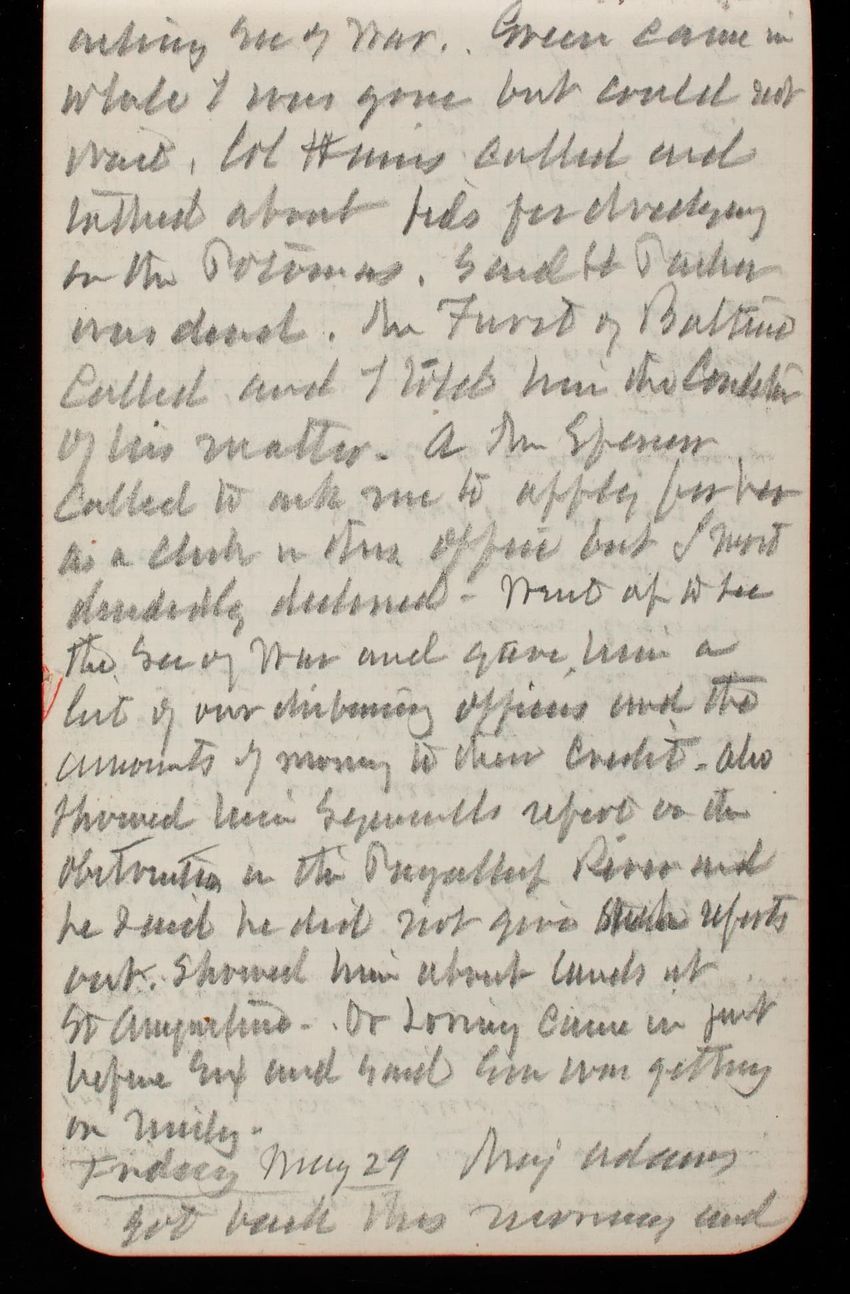 acting Sec of War. Green came in
while I was gone but could not
wait. Col Hains called and
talked about bids for dredging
on the Potomac. Said Lt
was dead. Mr Furst of Baltimo
called and I told him the condition
of his matter. A Mr Spencer
called to ask me to apply for her
as a clerk in this office but I most
decidedly declined - Went up to see
the Sec of War and gave him a
list of our disbursing officers and the
amounts of money to their credit - also
showed him report on the
obstruction in the Puyallup River and
he said he did not give such reports
out. Showed him about lands at
St Augustine - Dr Loring came in just
before six and said Gen was getting
on nicely -
Friday May 29 Maj Adams
got back this morning and